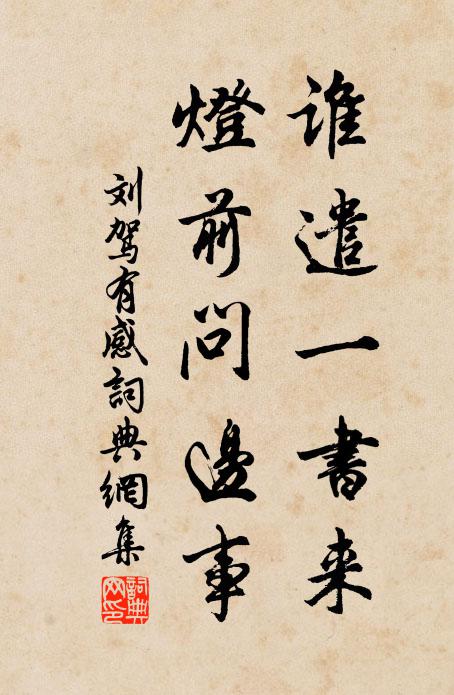 谁遣一書来
燈前問邊事
刘驾有感詞典網集
詞典
网印